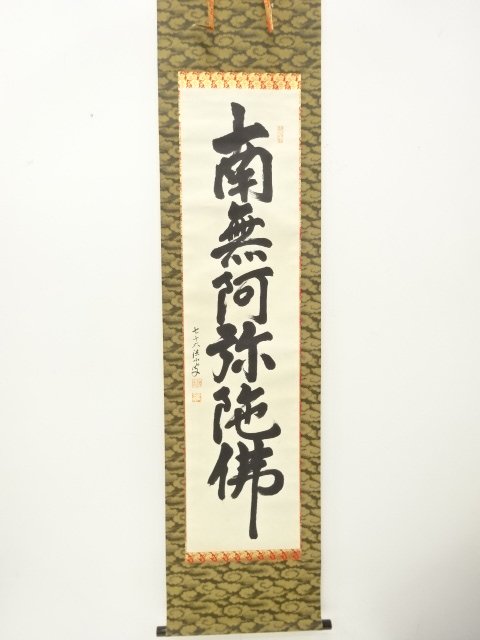 南無阿弥陀佛
七十八